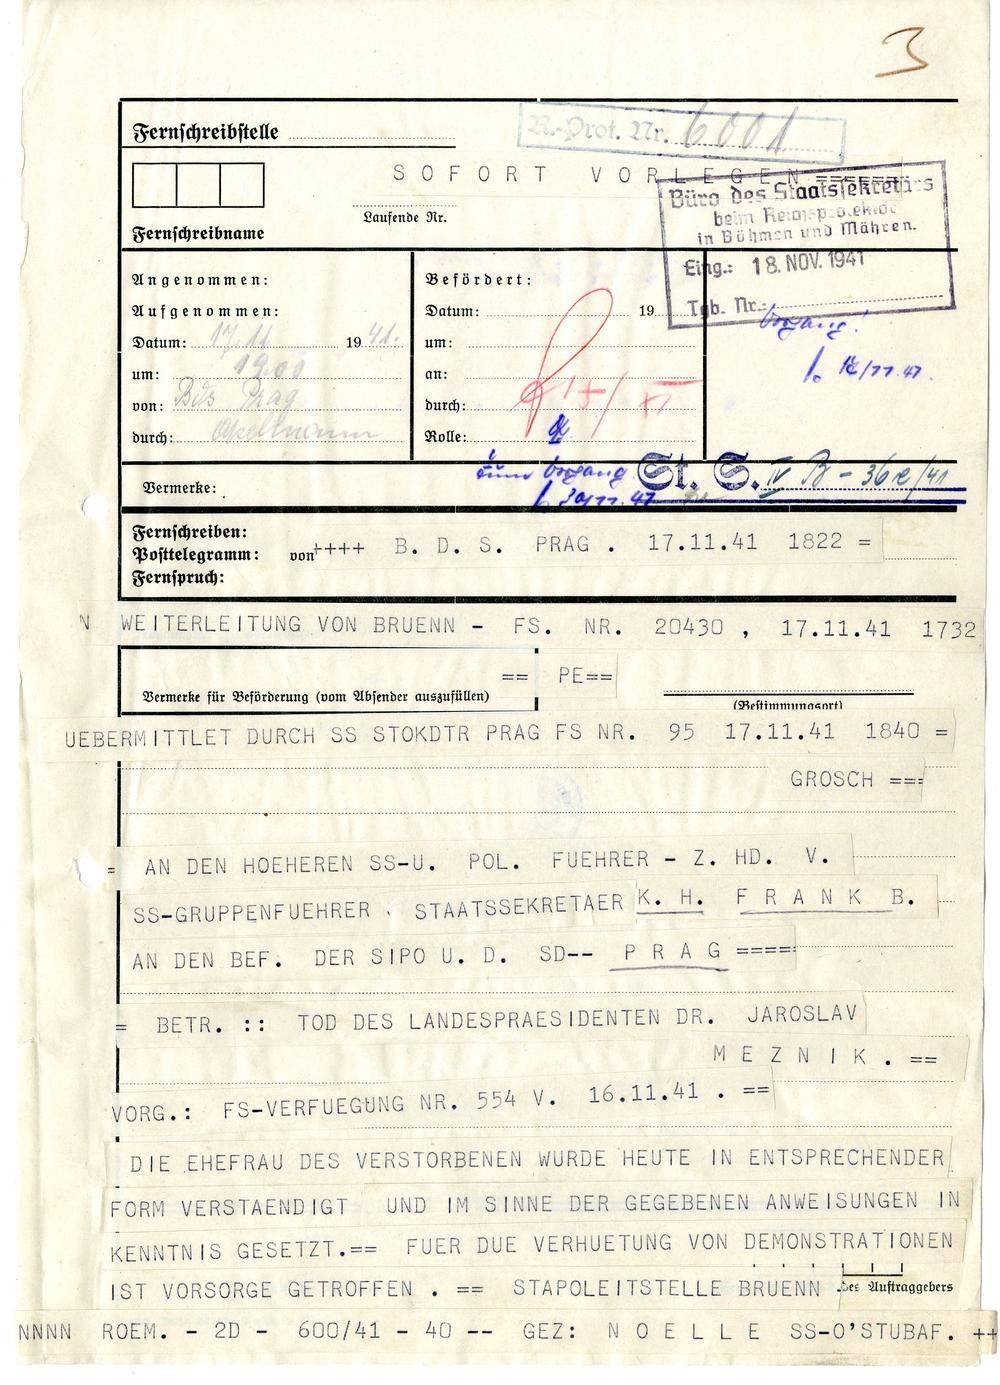 3
Fernschreibstelle
R.-Prot. Nr. 6001
SOFORT VORLEGEN =====
Laufende Nr.
Fernschreibname
Büro des Staatssekretärs
beim Reichsprotektor
in Böhmen und Mähren.
Eing.: 18. NOV. 1941
Tgb. Nr.:
Angenommen:
Aufgenommen:
Datum: 17.11 1941.
um: 1900
von: Bds Prag
durch:
Befördert:
Datum: 19
um:
an:
durch:
Rolle:
Vorgang!
Vermerke:
zum Vorgang
St. S. IV B - 36e/41
Fernschreiben:
Posttelegramm: von ++++ B. D. S. PRAG . 17.11.41 1822 =
Fernspruch:
N WEITERLEITUNG VON BRUENN - FS. NR. 20430 , 17.11.41 1732
== PE==
Vermerke für Beförderung (vom Absender auszufüllen)
(Bestimmungsort)
UEBERMITTLET DURCH SS STOKDTR PRAG FS NR. 95 17.11.41 1840 =
GROSCH ===
= AN DEN HOEHEREN SS-U. POL. FUEHRER - Z. HD. V.
SS-GRUPPENFUEHRER . STAATSSEKRETAER K. H. F R A N K B.
AN DEN BEF. DER SIPO U. D. SD-- P R A G ====
= BETR. :: TOD DES LANDESPRAESIDENTEN DR. JAROSLAV
M E Z N I K . ==
VORG.: FS-VERFUEGUNG NR. 554 V. 16.11.41 . ==
DIE EHEFRAU DES VERSTORBENEN WURDE HEUTE IN ENTSPRECHENDER
FORM VERSTAENDIGT UND IM SINNE DER GEGEBENEN ANWEISUNGEN IN
KENNTNIS GESETZT.== FUER DUE VERHUETUNG VON DEMONSTRATIONEN
IST VORSORGE GETROFFEN . == STAPOLEITSTELLE BRUENN .
des Auftraggebers
NNNN ROEM. - 2D - 600/41 - 40 -- GEZ: N O E L L E SS-O'STUBAF. ++